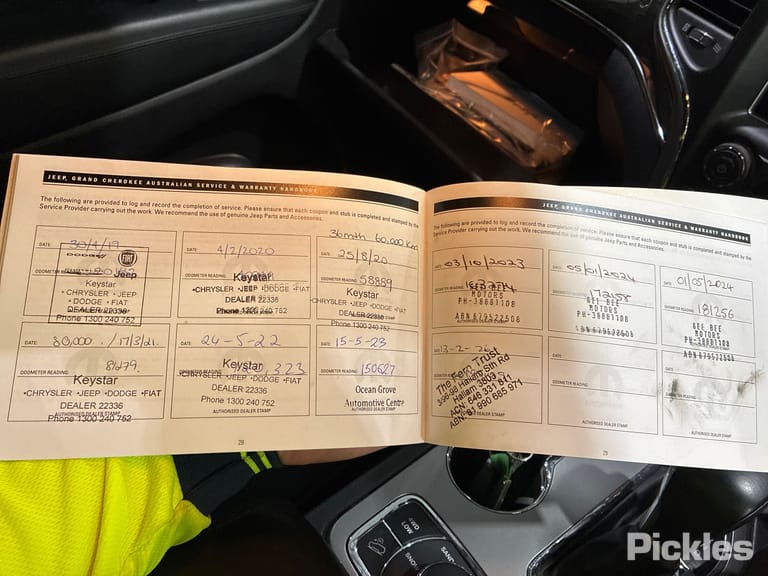 JEEP, GRAND CHEROKEE AUSTRALIAN SERVICE & WARRANTY HANDBOOK
The following are provided to log and record the completion of service. Please ensure that each coupon and stub is completed and stamped by the
Service Provider carrying out the work. We recommend the use of genuine Jeep Parts and Accessories.
DATE: 30/4/19
ODOMETER READING:
FIAT
Jeep
Keystar
•CHRYSLER •JEEP
•DODGE •FIAT
DEALER 22336
Phone 1300 240 752
DATE: 4/2/2020
ODOMETER READING:
Keystar
•CHRYSLER •JEEP •DODGE •FIAT
DEALER 22336
Phone 1300 240 752
36mth 60,000 kms
DATE: 25/8/20
ODOMETER READING: 58889
Keystar
•CHRYSLER •JEEP •DODGE •FIAT
DEALER 22336
Phone 1300 240 752
DATE: 80,000 / 17/3/21.
ODOMETER READING: 81279.
Keystar
•CHRYSLER •JEEP •DODGE •FIAT
DEALER 22336
Phone 1300 240 752
AUTHORISED DEALER STAMP
DATE: 24-5-22
Keystar
•CHRYSLER •JEEP •DODGE •FIAT
DEALER 22336
Phone 1300 240 752
AUTHORISED DEALER STAMP
DATE: 15-5-23
ODOMETER READING: 150627
Ocean Grove
Automotive Centre
AUTHORISED DEALER STAMP
28
JEEP, GRAND CHEROKEE AUSTRALIAN SERVICE & WARRANTY HANDBOOK
The following are provided to log and record the completion of service. Please ensure that each coupon and stub is completed and stamped by the
Service Provider carrying out the work. We recommend the use of genuine Jeep Parts and Accessories.
DATE: 03/10/2023
ODOMETER READING:
MOTORS
PH-38881108
ABN 679522506
DATE: 05/01/2024
ODOMETER READING: 172158
GEE BEE
MOTORS
PH-38881108
ABN 679522506
DATE: 01/05/2024
ODOMETER READING: 181256
GEE BEE
MOTORS
PH-38881108
ABN 679522506
DATE: 13-2-
The Fern Trust
Hallam Sth Rd
Hallam 3803
ACN: 648 331 871
ABN: 81 990 885 971
DATE:
ODOMETER READING:
AUTHORISED DEALER STAMP
DATE:
ODOMETER READING:
AUTHORISED DEALER STAMP
29
4WD
LOW
SNOW
SAND
Pickles